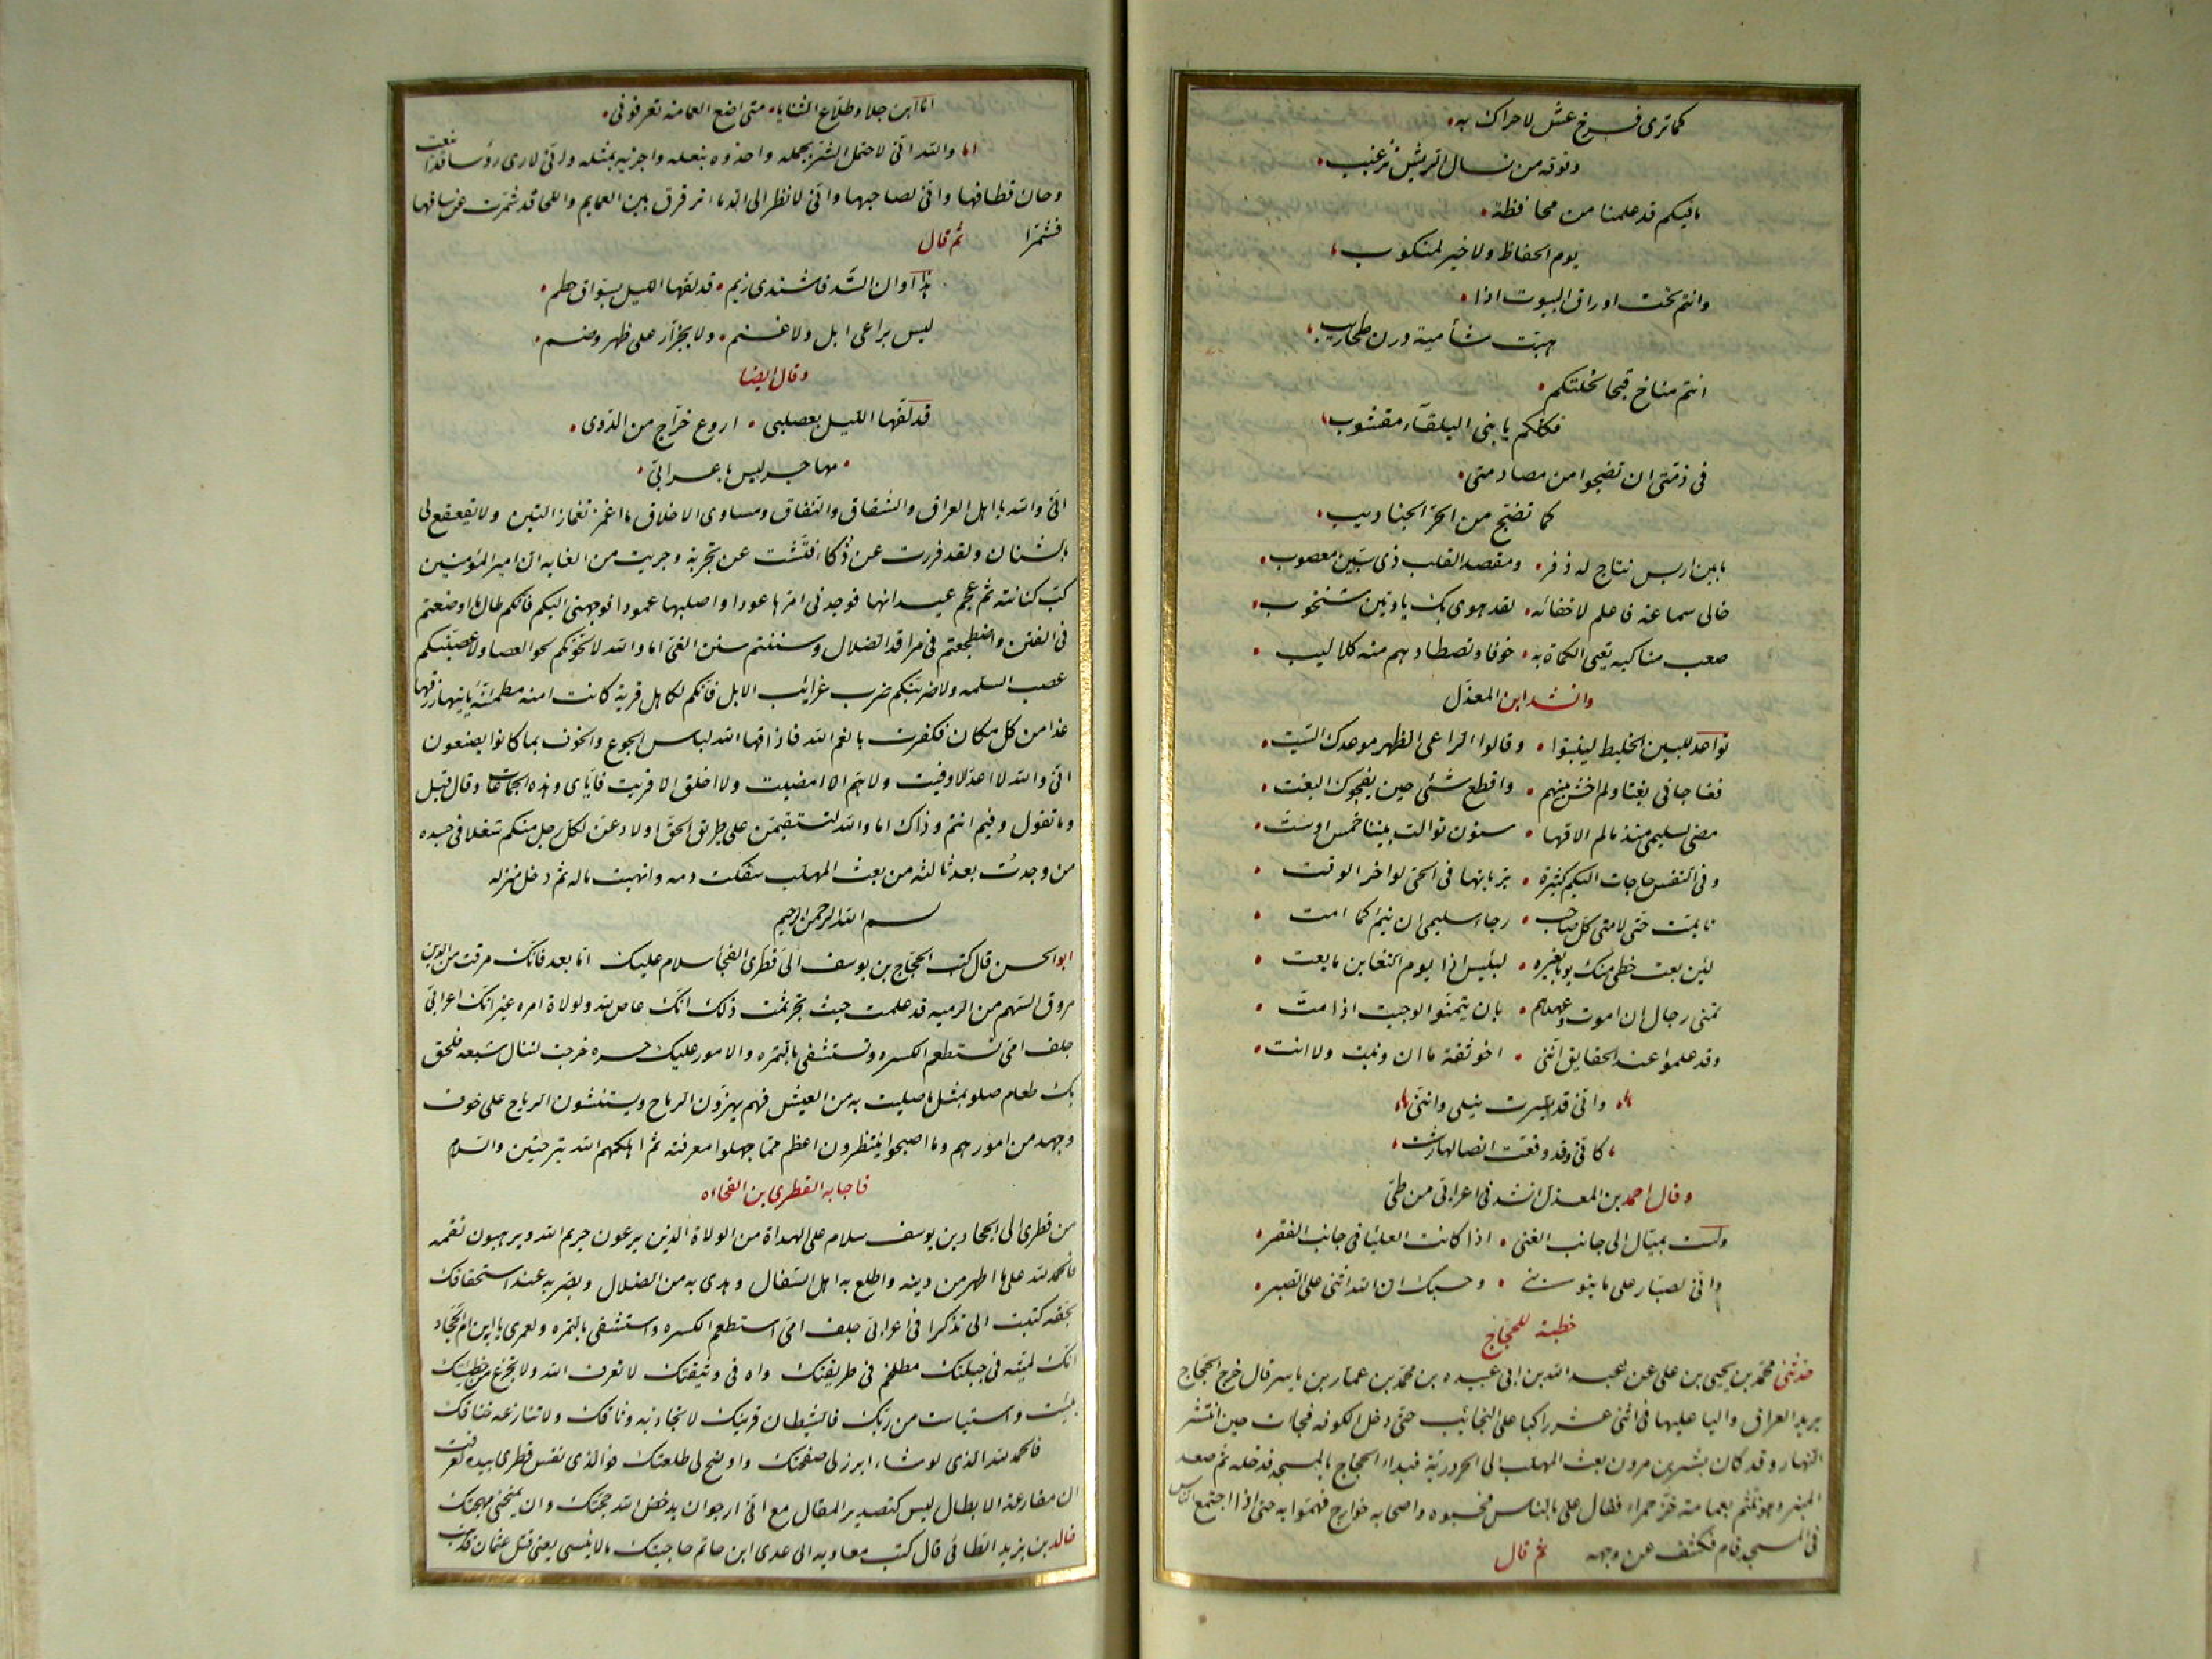 كما ترى فرخ عش لا حراك به
وفوقه من نسال الريش تزغيب
ما فيكم قد علمنا من محافظة
يوم الحفاظ ولا خير لمنكوب
وانتم تحت اوراق البيوت اذا
هبت شأمية درن طحاريب
انتم مناخ
فكلكم يا بنى البلقاء مقشوب
فى ذمتى ان تضجوا من مصادمتى
كما تضج من الحر الجناديب
ما بين ادبس نتاج له ذفر ومقصد القلب ذى
خالى سماعة فاعلم لا خفاء به لقد هوى بك يا
صعب مناكبه تعيى الكماة به خوفا وتصطادهم منه كلاليب
وانشد ابن المعذل
تواعد للبين الخليط لينبتوا وقالوا لراعى الظهر موعدك السبت
ففاجانى بغتا ولم اخش بينهم وافظع شئ حين يفجوك البغت
مضى لسليمى منذ ما لم الاقها سنون توالت بيننا خمس او ست
وفى النفس حاجات اليكم كثيرة بربانها فى الحى لو اخر الوقت
تايمت حتى لامنى كل صاحب رجاء سليمى ان تيم كما امت
لئن بعت حظى منك يوما بغيره لبئس اذا يوم التغابن ما بعت
تمنى رجال ان اموت وعهدهم بان يتمنوا لو حييت اذا مت
وقد علموا عند الحقايق اننى اخو ثقة ما ان ونيت ولا انت
وانى قد سيرت نبلى واننى
كانى وقد وقعت انصالها رشت
وقال احمد بن المعذل انشدنى اعرابى من طى
ولست بميال الى جانب الغنى اذا كانت العليا فى جانب الفقر
وانى لصبار على ما ينوبنى وحسبك ان الله اثنى على الصبر
خطبة للحجاج
حدثنى محمد بن يحيى بن على عن عبد الله بن ابى عبيده بن محمد بن عمار بن ياسر قال خرج الحجاج
يريد العراق واليا عليها فى اثنى عشر راكبا على النجائب حتى دخل الكوفه فجاءت حين انتشر
النهار وقد كان بشر بن مروان بعث المهلب الى الحرورية فبداء الحجاج بالمسجد فدخله ثم صعد
المنبر وهو متلثم بعمامة خز حمراء فقال على بالناس فحسبوه واصحابه خوارج فهموا به حتى اذا اجتمع الناس
فى المسجد قام فكشف عن وجهه ثم قال
انا ابن جلا وطلاع الثنايا متى اضع العمامة تعرفونى
اما والله انى لاحتمل الشر بحمله واحذوه بنعله واجزيه بمثله وانى لارى رؤسا قد اينعت
وحان قطافها وانى لصاحبها وانى لانظر الى الدماء ترقرق بين العمايم واللحا قد شمرت عن ساقها
فشمرا ثم قال
هذا اوان الشد فاشتدى زيم قد لفها الليل بسواق حطم
ليس براعى ابل ولا غنم ولا بجزار على ظهر وضم
وقال ايضا
قد لفها الليل بعصلبى اروع خراج من الدوى
مهاجر ليس باعرابى
انى والله يا اهل العراق والشقاق والنفاق ومساوى الاخلاق ما اغمز تغماز التين ولا يقعقع لى
بالشنان ولقد فررت عن ذكاء وفتشت عن تجربة وجريت من الغايه ان امير المؤمنين
كب كنانته ثم عجم عيدانها فوجدنى امرها عودا واصلبها عمودا فوجهنى اليكم فانكم طال ما اوضعتم
فى الفتن واضطجعتم فى مراقد الضلال وسننتم سنن الغى اما والله لالحونكم لحو العصا ولاعصبنكم
عصب السلمه ولاضربنكم ضرب غرايب الابل فانكم لكاهل قرية كانت امنه مطمئنة ياتيها رزقها
غدا من كل مكان فكفرت بانعم الله فاذاقها الله لباس الجوع والخوف بما كانوا يصنعون
انى والله لا اعد الا وفيت ولا اهم الا امضيت ولا اخلق الا فريت فاياى وهذه الجماعات وقال وقيل
وما تقول وفيم انتم وذاك اما والله لتستقيمن على طريق الحق او لادعن لكل رجل منكم شغلا فى جسده
من وجدت بعد ثالثه من بعث المهلب سفكت دمه وانهبت ماله ثم دخل منزله
بسم الله الرحمن الرحيم
ابو الحسن قال كتب الحجاج بن يوسف الى قطرى الفجأ سلام عليك اما بعد فانك مرقت من الدين
مروق السهم من الرميه قد علمت حيث تجرثمت ذلك انك عاص لله ولولاة امره غير انك اعرابى
جلف امى تستطعم الكسره وتستشفى بالتمره والامور عليك حسره خرجت لتنال شبعه فلحق
بك طعام صلو بمثل ما صليت به من العيش فهم يهزون الرماح ويستنشون الرياح على خوف
وجهد من امورهم وما اصبحوا ينتظرون اعظم مما جهلوا معرفته ثم اهلكهم الله بترحتين والسلام
فاجابه القطرى بن الفجاءه
من قطرى الى الحجاد بن يوسف سلام على الهداة من الولاة الذين يرعون حريم الله ويرهبون نقمه
فالحمد لله على ما اظهر من دينه واطلع به اهل السفال وهدى به من الضلال وبصر به عند استخفافك
بحقه كتبت الى تذكر انى اعرابى جلف امى استطعم الكسره واستشفى بالتمره ولعمرى يا ابن ام الحجاد
انك لميته فى جبلتك مطلخم فى طريقتك واه فى وثيقتك لا تعرف الله ولا تجزع من خطيئتك
يئست واستياست من ربك فالشيطان قرينك لا تجاذبه وثاقك ولا تنازعه خناقك
فالحمد لله الذى لو شاء ابرز لى صفحتك واوضح لى طلعتك فو الذى نفس قطرى بيده لعرفت
ان مقارعة الابطال ليس كتصدير المقال مع انى ارجو ان يدحض الله حجتك وان يمنحنى مهجتك
خالد بن يزيد الطائى قال كتب معاويه الى عدى ابن حاتم حاجيتك ما لا ينسى يعنى قتل عثمان فذهب